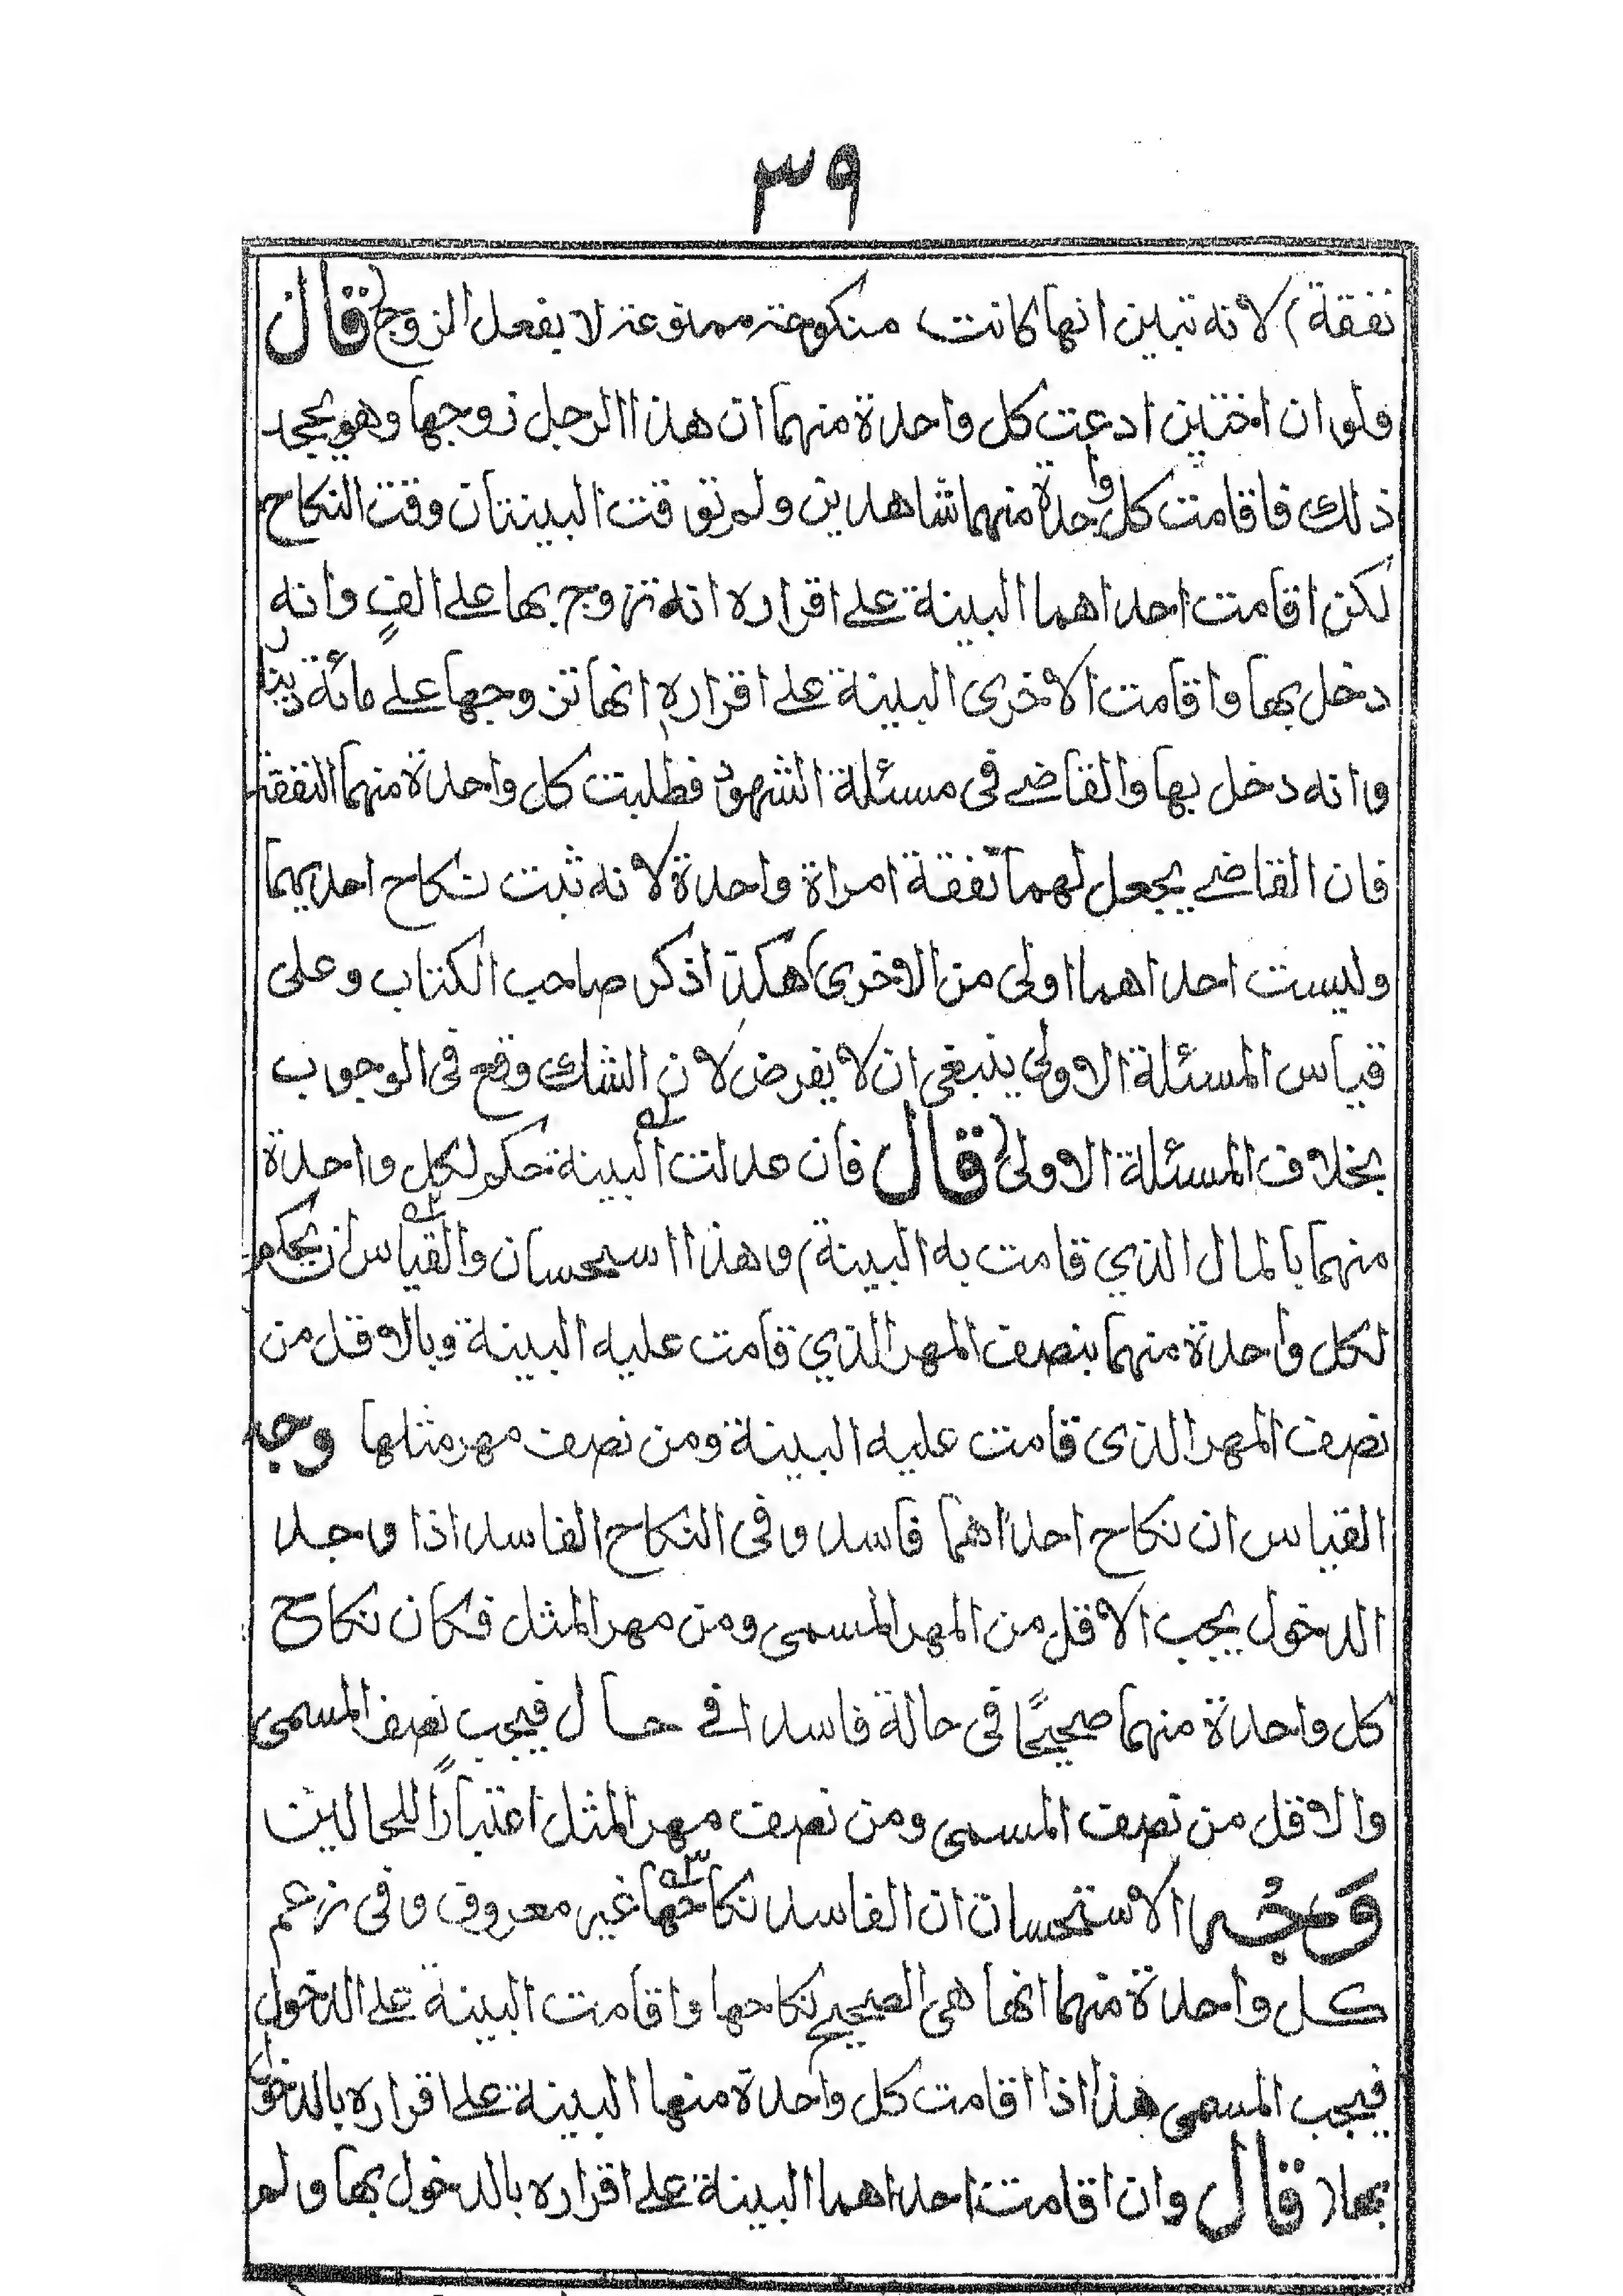 ٣٩
نفقة) لانه تبين انها كانت منكوحة ممنوعة لا بفعل الزوج (قال
فلو ان اختين ادعت كل واحدة منهما ان هذا الرجل زوجها وهو يجحد
ذلك فاقامت كل واحدة منهما شاهدين ولم توقت البينتان وقت النكاح
لكن اقامت احداهما البينة على اقراره انه تزوج بها على الفٍ وانه
دخل بها واقامت الاخرى البينة على اقراره انها تزوجها على مائة دينار
وانه دخل بها والقاضى فى مسئلة الشهود فطلبت كل واحدة منهما النفقة
فان القاضى يجعل لهما نفقة امراة واحدة لانه ثبت نكاح احديهما
وليست احداهما اولى من الاخرى) هكذا ذكر صاحب الكتاب وعلى
قياس المسئلة الاولى ينبغى ان لا يفرض لان الشك وقع فى الوجوب
بخلاف المسئلة الاولى (قال فان عدلت البينة حكم لكل واحدة
منهما بالمال الذي قامت به البينة) وهذا استحسان والقياس ان يحكم
لكل واحدة منهما بنصف المهر الذي قامت عليه البينة وبالاقل من
نصف المهر الذى قامت عليه البينة ومن نصف مهر مثلها وجه
القياس ان نكاح احداهما فاسد وفى النكاح الفاسد اذا وجد
الدخول يجب الاقل من المهر المسمى ومن مهر المثل فكان نكاح
كل واحدة منهما صحيحًا فى حالة فاسدا فى حال فيجب نصف المسمى
والاقل من نصف المسمى ومن نصف مهر المثل اعتبارًا للحالين
وَوجُه الاستحسان ان الفاسد نكاحها غير معروف وفى زعم
كل واحدة منهما انها هى الصحيح نكاحها واقامت البينة على الدخول
فيجب المسمى هذا اذا اقامت كل واحدة منها البينة على اقراره بالدخول
بها (قال وان اقامت احداهما البينة على اقراره بالدخول بها ولم